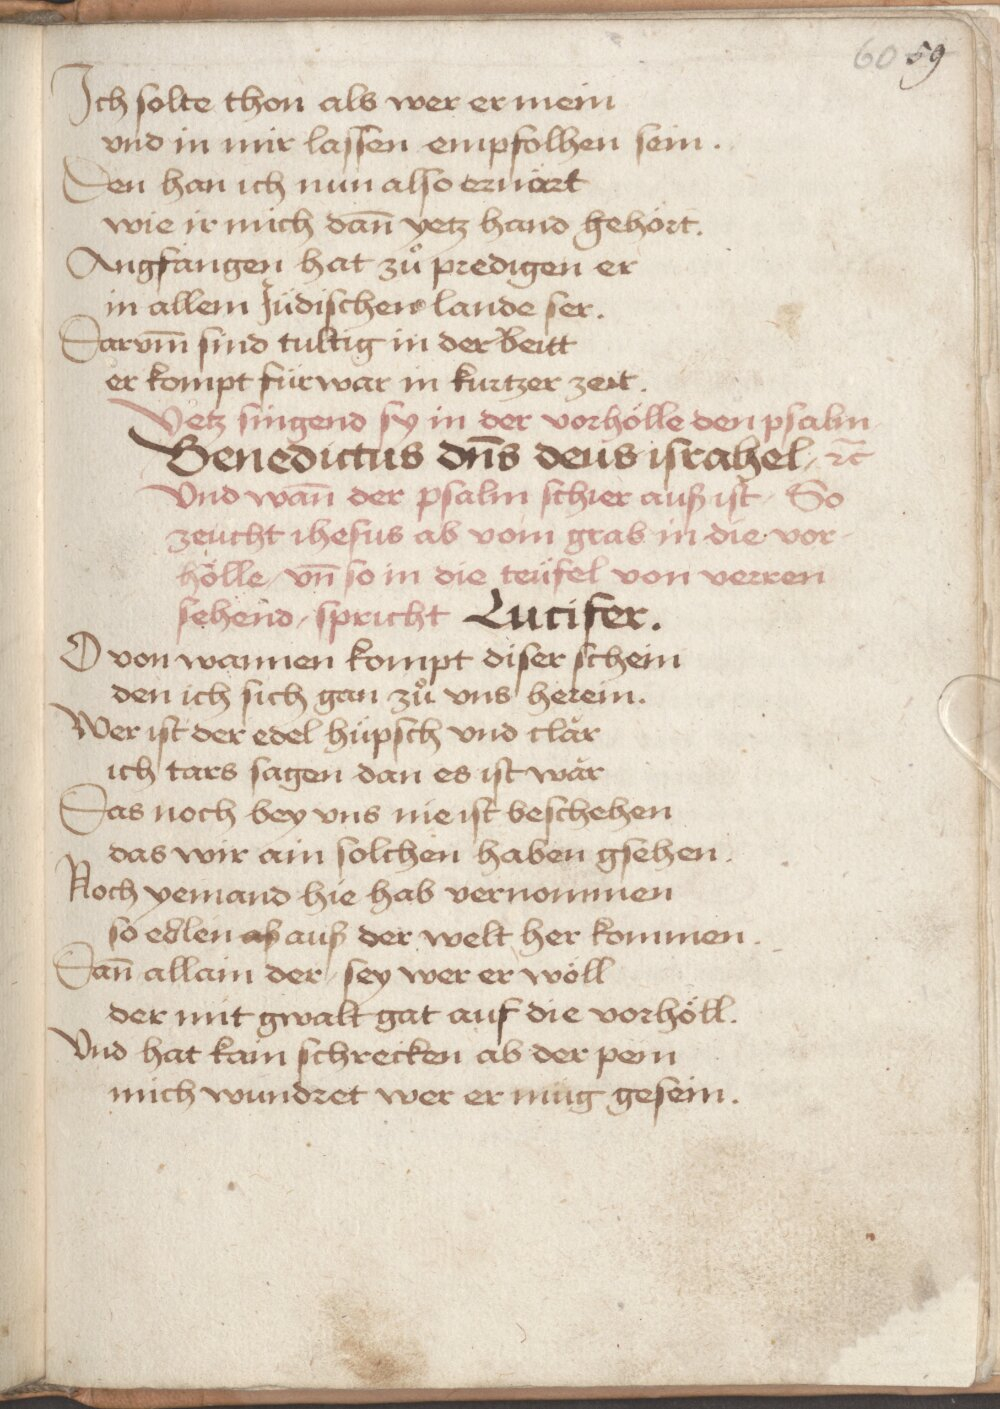 60 59
Ich solte thon als wer er mein
vnd in mir lassen empfolhen sein.
Den han ich nun also ernört
wie ir mich dan̄ yetz hand gehört.
Angfangen hat zů predigen er
in allem Jüdischen lande ser.
Darvm̄ sind tultig in der beitt
er kompt für war in kurtzer zeit.
Yetz singend sy in der vorhölle den psalm
Benedictus dn̄s deus israhel, ⁊c̄
Vnd wan̄ der psalm schier auß ist / So
zeucht ihesus ab vom grab in die vor-
hölle / vn̄ so in die teüfel von verren
sehend / spricht Lucifer.
O von wannen kompt diser schein
den ich sich gan zů vns herein.
Wer ist der edel hüpsch vnd clăr
ich tars sagen dan es ist wăr
Das noch bey vns nie ist beschehen
das wir ain solchen haben gsehen.
Noch yemand hie hab vernommen
so edlen auß der welt her kommen.
Dan̄ allain der / sey wer er wöll
der mit gwalt gat auf die vorhöll.
Vnd hat kain schrecken ab der pein
mich wundret wer er müg gesein.